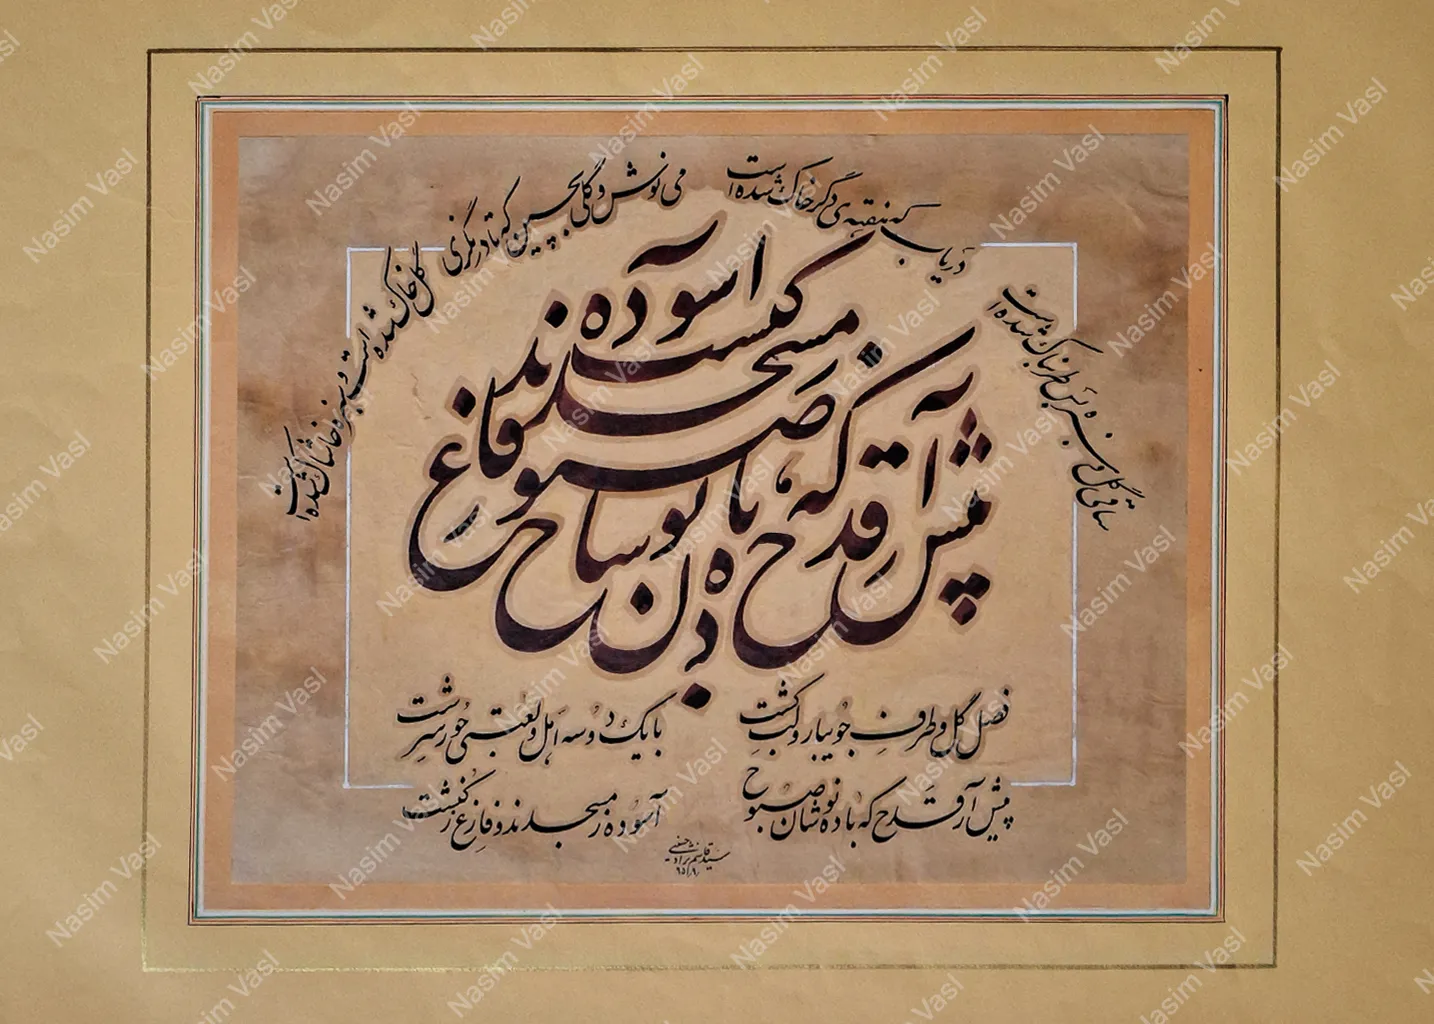 ساقی گل و سبزه بس طربناک شده است
دریاب که هفته‌ی دگر خاک شده است
می نوش و گلی بچین که تا درنگری
گل خاک شده است و سبزه خاشاک شده است
پیش آر قدح که باده نوشان صبوح
آسوده ز مسجدند و فارغ ز کنشت
فصل گل و طرف جویبار و لب کشت
با یک دو سه اهل و لعبتی حور سرشت
پیش آر قدح که باده نوشان صبوح
آسوده ز مسجدند و فارغ ز کنشت
Nasim Vasl